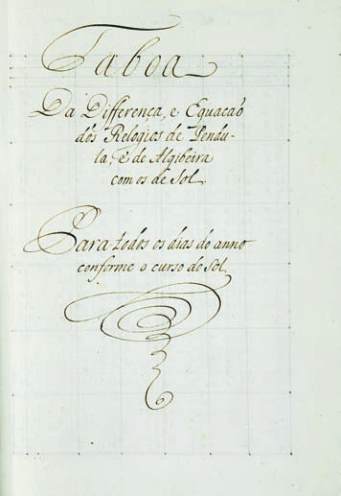 Taboa
Da Differença, e Equacaõ
dos Relogios de Pendu-
la, e de Algibeira
com os de Sol.
Para todos os dias do anno
conforme o curso do Sol